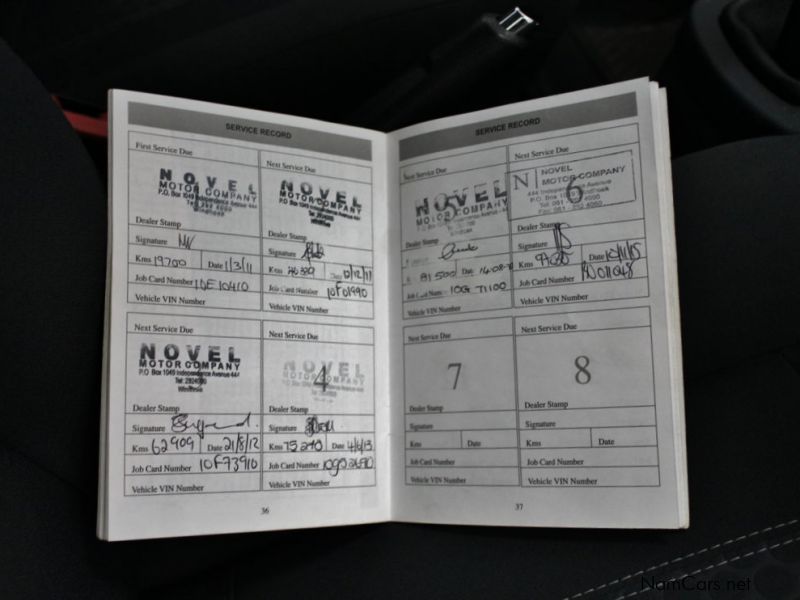 SERVICE RECORD
First Service Due
NOVEL
MOTOR COMPANY
P.O. Box 1049 Independence Avenue 444
Windhoek
Dealer Stamp
Signature
Kms 19700 Date 1/3/11
Job Card Number 10E10410
Vehicle VIN Number
Next Service Due
NOVEL
MOTOR COMPANY
P.O. Box 1049 Independence Avenue 444
Windhoek
Dealer Stamp
Signature
Kms Date 12/11
Job Card Number 10F01990
Vehicle VIN Number
Next Service Due
NOVEL
MOTOR COMPANY
P.O. Box 1049 Independence Avenue 444
Windhoek
Dealer Stamp
Signature
Kms 62909 Date 21/8/12
Job Card Number 10F73910
Vehicle VIN Number
Next Service Due
NOVEL
MOTOR COMPANY
4
Dealer Stamp
Signature
Kms 75240 Date 4/6/13
Job Card Number
Vehicle VIN Number
36
SERVICE RECORD
Next Service Due
NOVEL
MOTOR COMPANY
Dealer Stamp
81500 Date
Job Card Num 10G71100
Vehicle VIN Number
Next Service Due
N NOVEL
MOTOR COMPANY
444 Independence Avenue
P.O. Box Windhoek
6
Dealer Stamp
Signature
Kms Date 10/11/15
Job Card Number
Vehicle VIN Number
Next Service Due
7
Dealer Stamp
Signature
Kms Date
Job Card Number
Vehicle VIN Number
Next Service Due
8
Dealer Stamp
Signature
Kms Date
Job Card Number
Vehicle VIN Number
37
NamCars.net